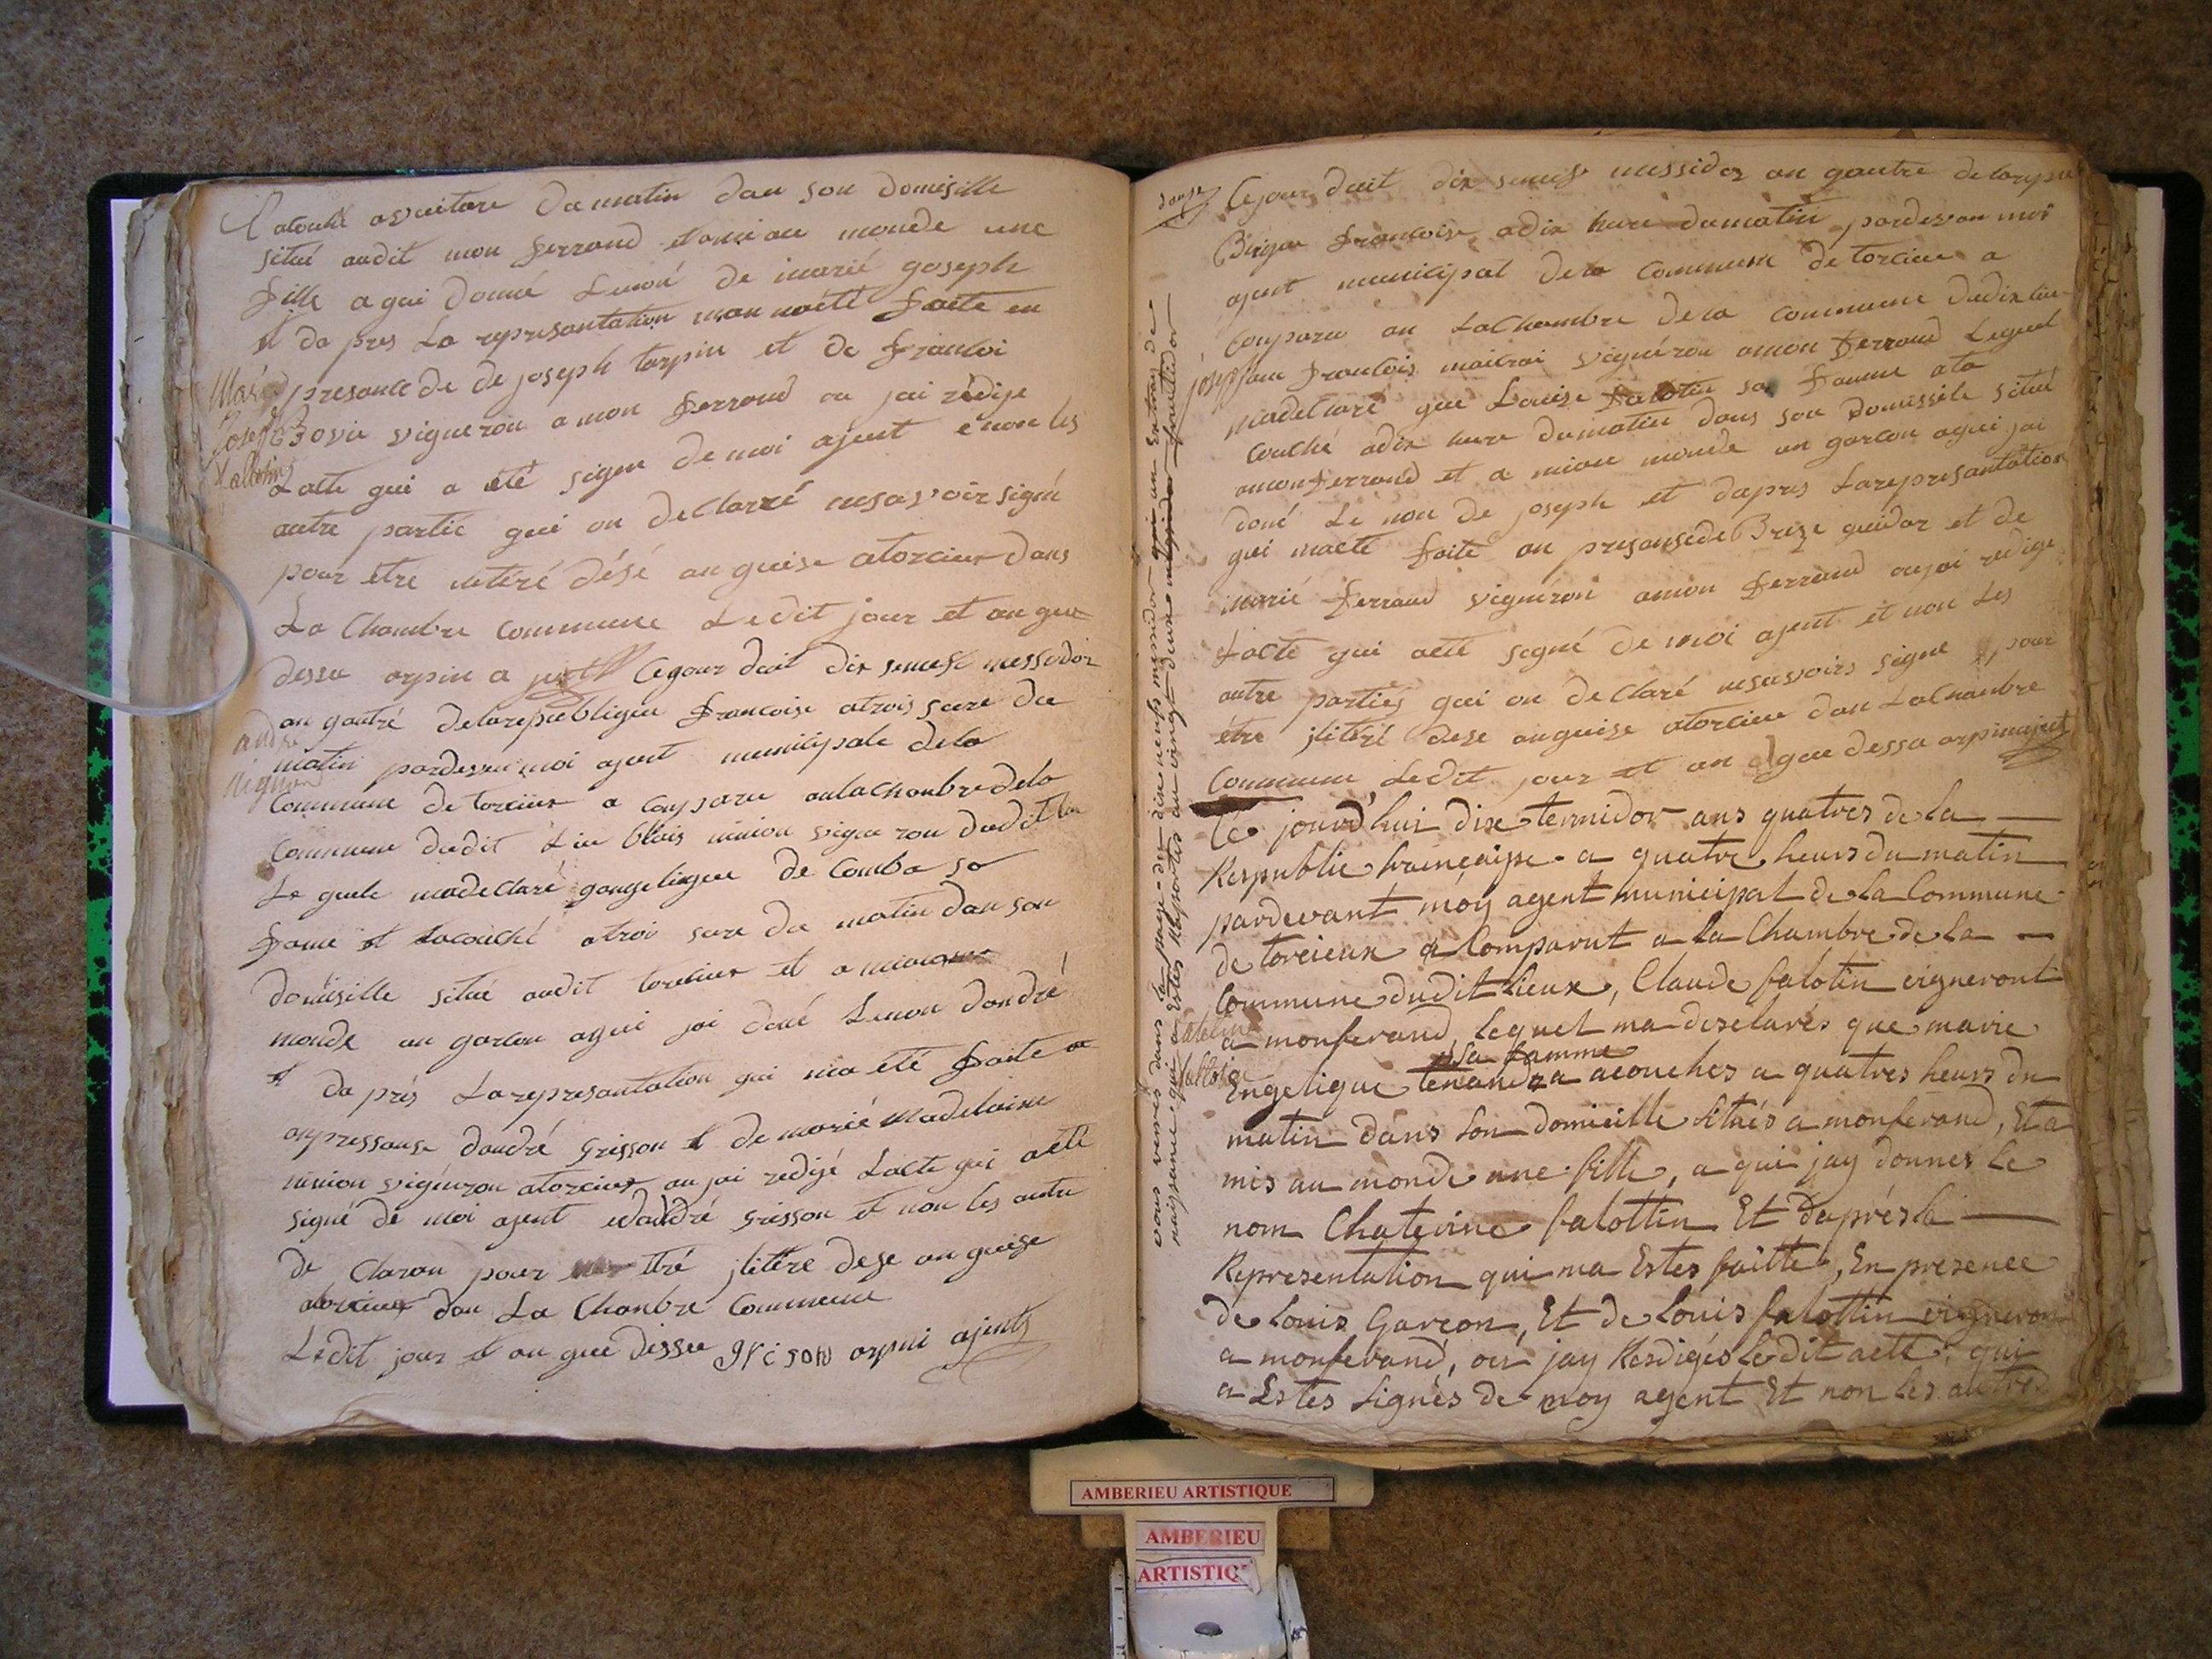 a couché a suitare du matin dan son domisille
situé audit mon ferrand et a mi au monde une
fille a qui doné le non de marié joseph
et da pres La represantation man naété faite en
Marie presance de de joseph tarpin et de francoi
Joseph Bovie vigneron a mon ferrand ou jai rédije
Lacte qui a été signe de moi ajent e non les
autre partie qui on declarré nesavoir signé
pour être détéré désé anguise a torcieux dans
La Chambre commune Ledit jour et an que
dessu orpin a jent Cejour duit dix semese messidor
an quatré delarepublique francoise a trois sure du
andré
matin pardevan moi ajent municipale dela
nignon
Commune de torcieux a conparu anlachanbre dela
Commune dudit Lieu blais minion vigneron dudit lieu
Le quele madeclaré gangelique de Comba sa
fame et lacouché a troi sure du matin dan son
domisille situé audit torcieux et a mi au
monde un garcon aqui jai doné Lenon dandré
et da prés Larepresantation qui ma été faite a
anpressanse dandré grisson et de marié madelaine
minion vigneron atorcieux ou jai redijé Lacte qui aété
signé de moi ajent edandré grisson et non les autre
de claron pour etré jlitére dese anguise
atorcieux dan La Chanbre Commune
Ledit jour et an que dessu grison orpin ajent
Cejour duit dix semese messidor an quatre delarepu
Blique francoise a dix hure du matin pardevan moi
ajent municipal de la Commune de torcieu a
Conparu an LaChambre dela commune dudix lieu
joseph
Jan francois maitrai vigneron a mon ferrand Lequel
madeclaré que Louise falotin sa famme ala
couché a dix hure dumatin dans son domissile situé
amonferrand et a miau monde un garcon aqui jai
doné Le non de joseph et dapres Larepresantation
qui maété faite an presansede Brize guidor et de
marié ferrand vigneron amon ferrand oujai redige
Lacte qui aété signé de moi ajent et non Les
autre partiés qui on declaré nesavoirs signe pour
étre jlitéré dese anguise atorcieu dan LaChanbre
Commune Ledit jour et an que dessu orpin ajent
vous verrés dans la page dix neufs messidor
naissance qui a Estes Raportés au vingt deux messidor
Ce jourd'hui dix termidor ans quatres de la
Respublic frainçaise a quatre heurs du matin
pardevant moy agent municipal de la Commune
de torcieux a Comparut a la Chambre de la
Commune dudit Lieux, Claude falotin vigneront
a monferand, lequel ma desclarés que marie
sa famme
Engelique tenand a acouches a quatres heurs du
matin dans son domicille Situés a monferand, Et a
mis au monde une fille, a qui jay donner le
nom Chaterine falottin Et daprés la
Representation qui ma Estes faitte, En presence
de Louis Garcon, Et de Louis falottin vigneron
a monferand, ou jay Resdigés Ledit acte, qui
a Estes Signés de moy agent Et non les autres
AMBERIEU ARTISTIQUE
AMBERIEU
ARTISTIQ